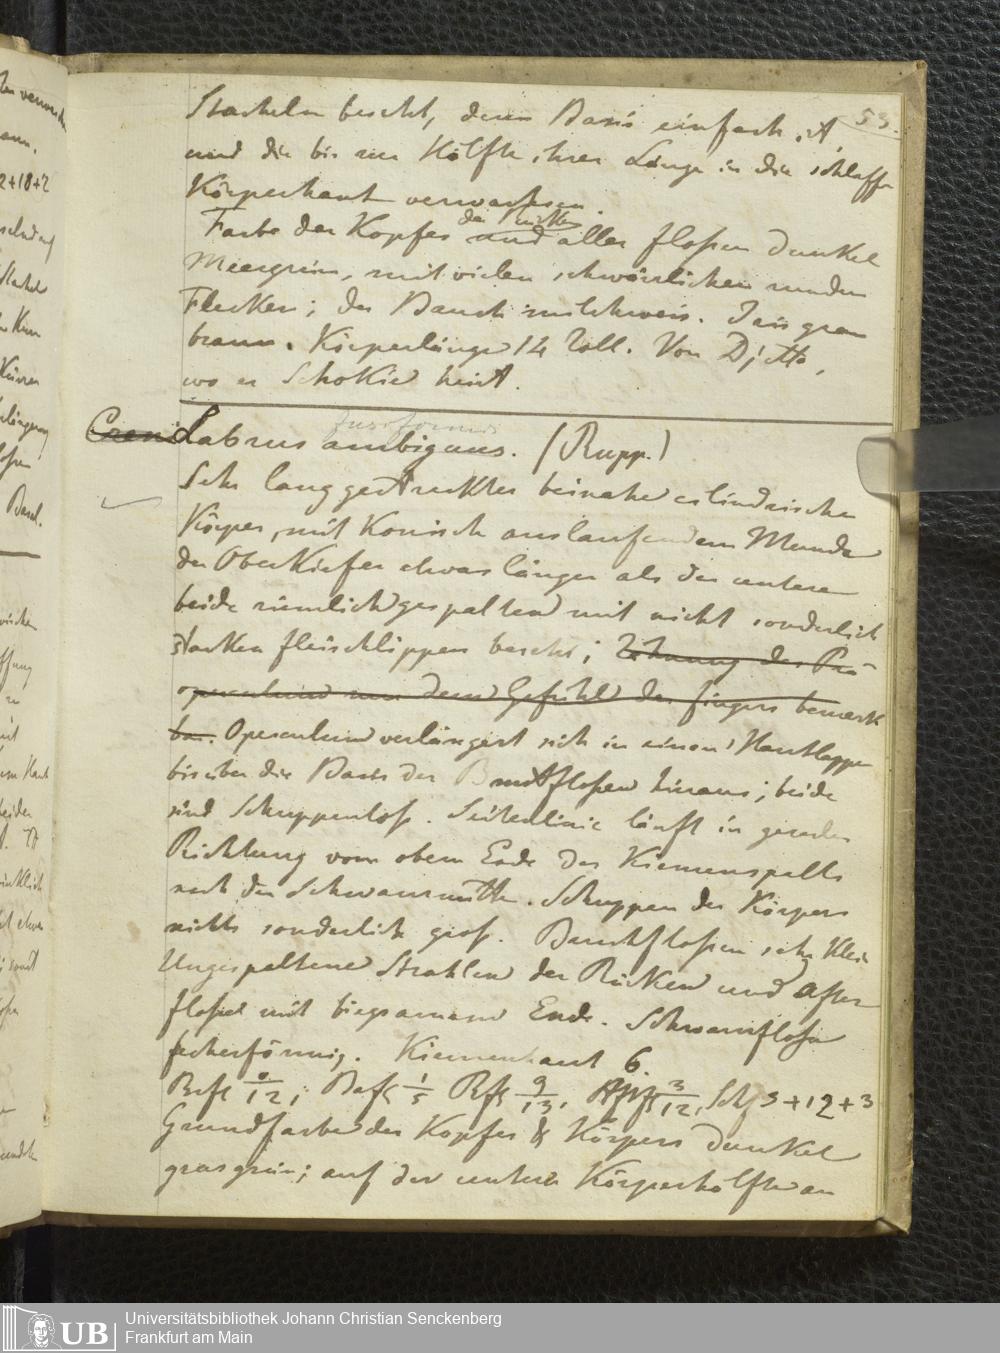 53.
Stacheln besetzt, deren Basis einfach ist,
und die bis zur Hälfte ihrer Länge in die schlaffe
Körperhaut verwachsen.
Farbe des Kopfes des Rückens und aller Floßen dunkel
Meergrün, mit vielen schwärzlichen runden
Flecken; der Bauch milchweis. Iris grau
braun. Körperlänge 14 Zoll. Von Djetta,
wo er Schokie heist.
fusiformis
Labrus ambiguus. (Rupp.)
Sehr langgestreckter beinahe cylindrischer
Körper, mit konisch auslaufendem Munde
der Oberkiefer etwas länger als der untere
beide ziemlich gespalten mit nicht sonderlich
starken fleischlippen besetzt; Zähnung des Prä-
operculums nur dem Gefühl der fingers bemerk
bar. Operculum verlängert sich in einen Hautlappen
bis über die Basis der Brustfloßen hinaus; beide
sind Schuppenlos. Seitenlinie läuft in gerader
Richtung vom obern Ende des Kiemenspalts
nach der Schwanzmitte. Schuppen des Körpers
nicht sonderlich gros. Bauchfloßen sehr klein
Ungespaltene Strahlen der Rücken und After
floßen mit biegsamem Ende. Schwanzfloße
fecherförmig. Kiemenhaut 6.
Brfl 0/12; Bafl 1/5 Rfl 9/13, Afl 3/12, Schfl 3+12+3
Grundfarbe des Kopfes & Körpers dunkel
grasgrün; auf der untern Körperhälfte an
Universitätsbibliothek Johann Christian Senckenberg
Frankfurt am Main
UB